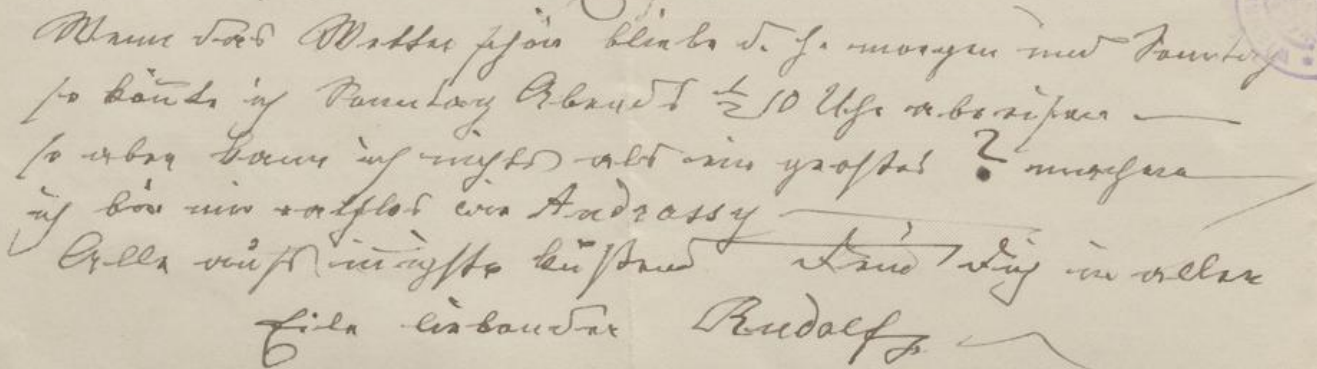 Wenn das Wetter schön bliebe d. h. morgen und Sonntag
so könnte ich Sonntag Abends ½10 Uhr abreisen —
so aber kann ich nichts als ein großes ? machen
ich bin nun rathlos wie Andrassy —
Alle aufs innigste küßend Dein Dich in aller
Eile liebender Rudolf